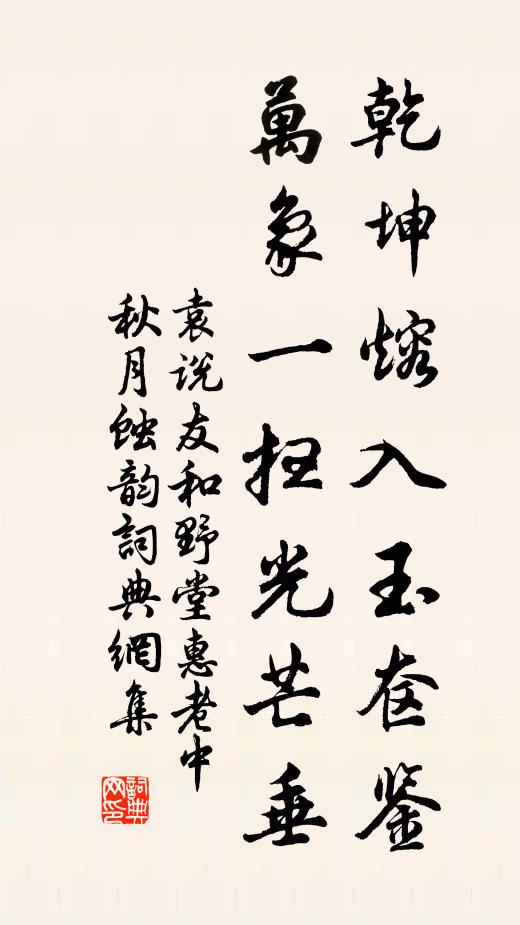 乾坤熔入玉奁鉴
萬象一扫光芒垂
袁说友和野堂惠老中
秋月蚀韵詞典網集
詞典网印